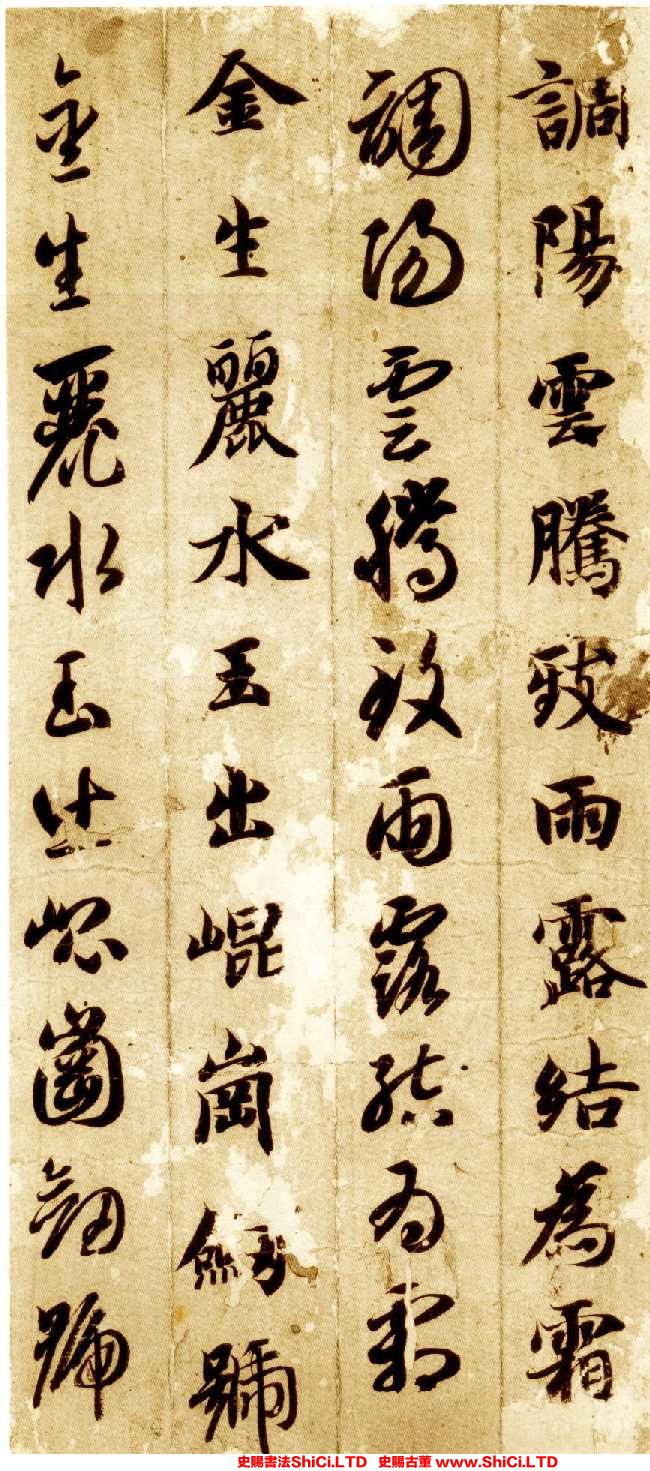 調陽雲騰致雨露結為霜
調陽雲騰致雨露結為霜
金生麗水玉出崐崗劒號
金生麗水玉出崐崗劒號
史賜書法ShiCi.LTD 史賜古董 www.ShiCi.LTD